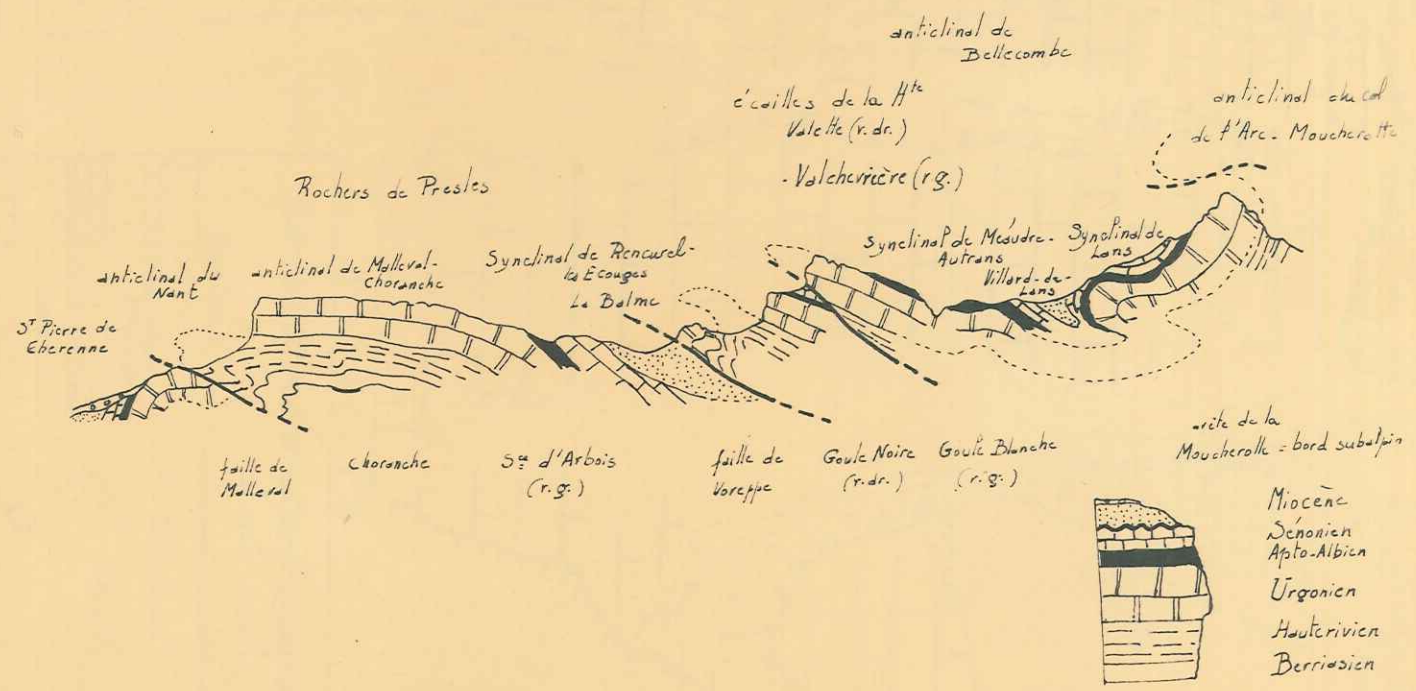 anticlinal de
Bellecombe
écailles de la Hte
Valette (r. dr.)
- Valchevrière (r g.)
anticlinal du col
de l'Arc - Moucherotte
Rochers de Presles
anticlinal du
Nant
anticlinal de Malleval-
Choranche
Synclinal de Rencurel-
les Ecouges
La Balme
Synclinal de Méaudre-
Autrans
Villard-de-
Lans
Synclinal de
Lans
ST Pierre de
Cherenne
faille de
Malleval
Choranche
d'Arbois
(r. g.)
faille de
Voreppe
Goule Noire
(r. dr.)
Goule Blanche
(r. g.)
arête de la
Moucherolle = bord subalpin
Miocène
Sénonien
Apto-Albien
Urgonien
Hauterivien
Berriasien